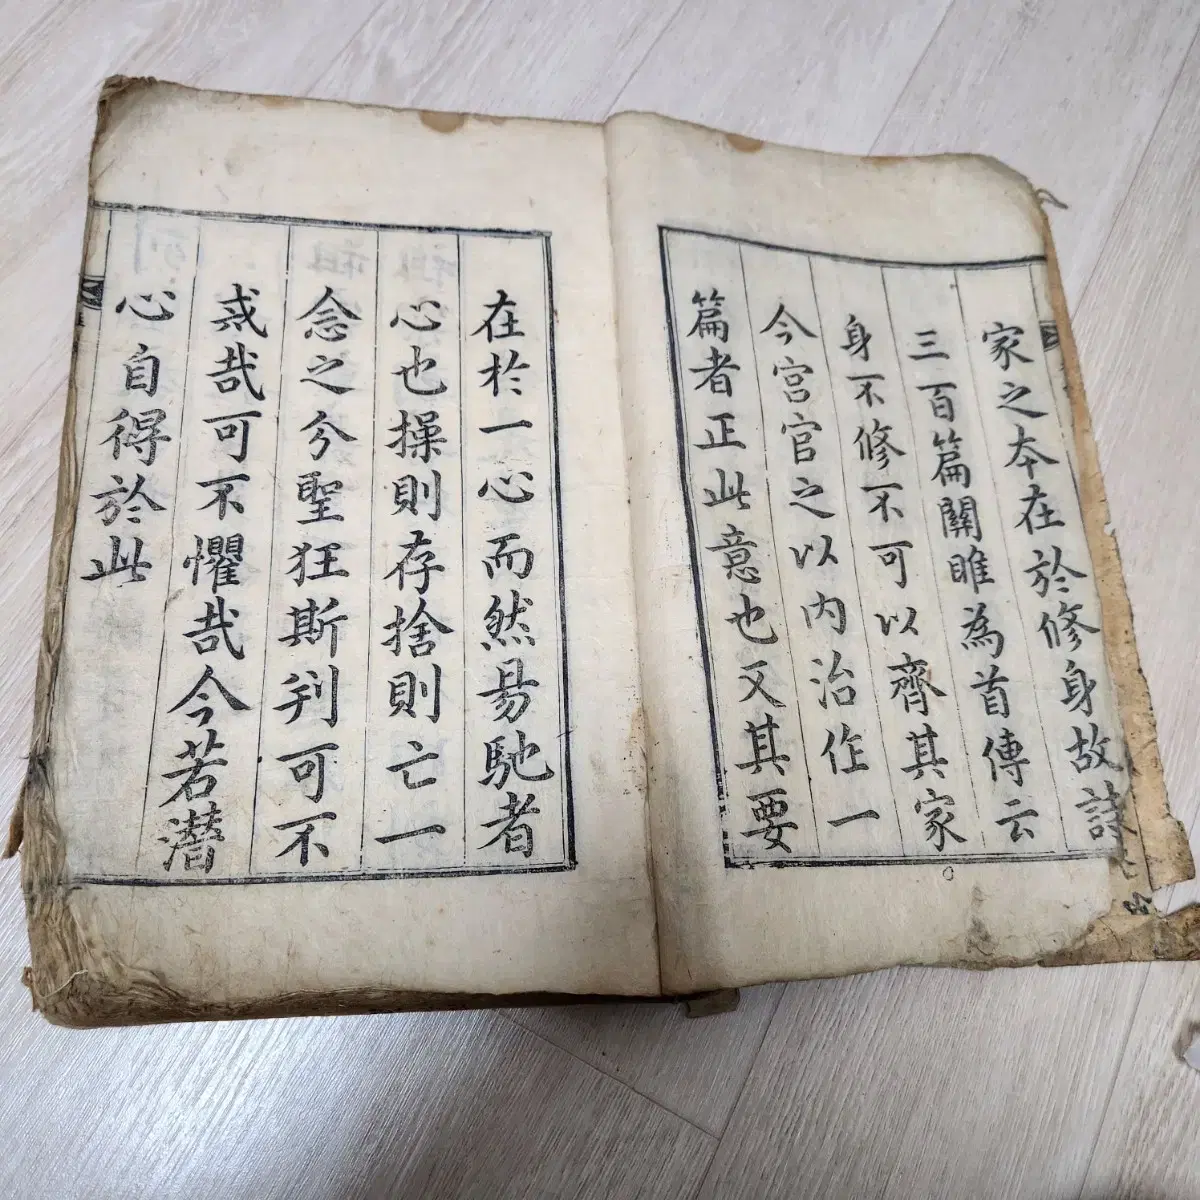 家之本在於修身故詩
三百篇關雎為首傳云
身不修不可以齊其家
今宮官之以内治作一
篇者正此意也又其要
在於一心而然易馳者
心也操則存捨則亡一
念之分聖狂斯判可不
戒哉可不懼哉今若潛
心自得於此